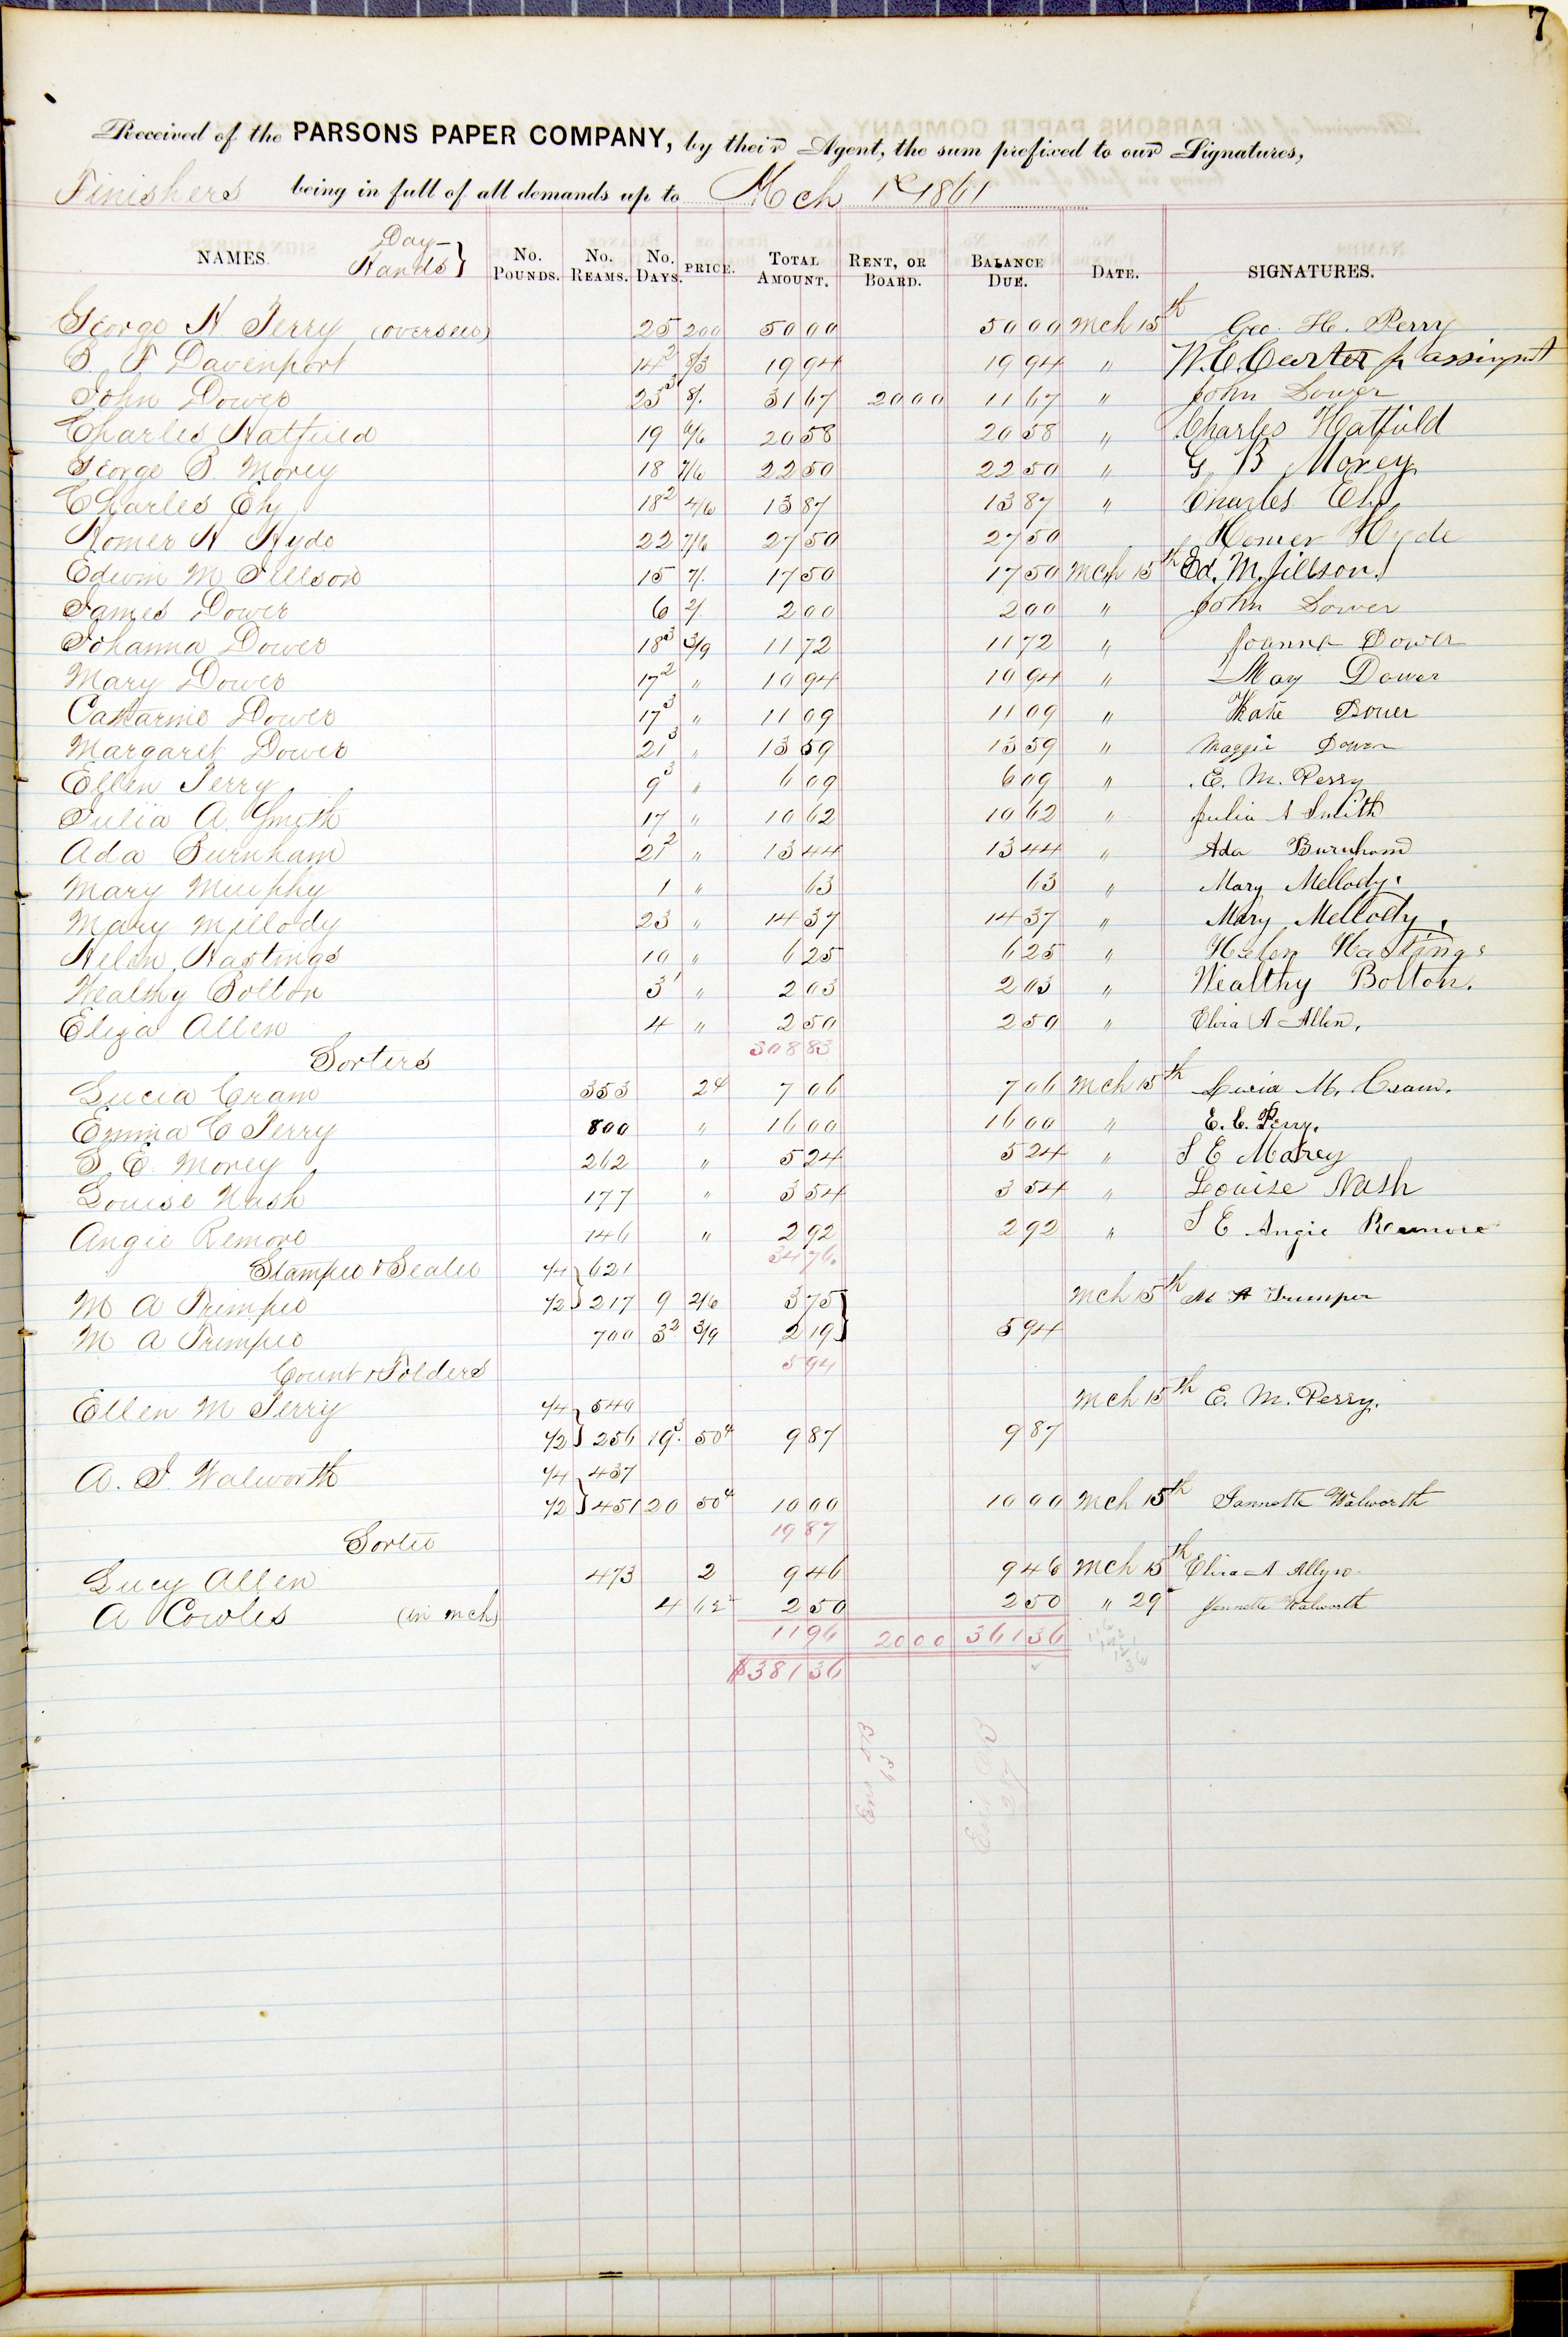 7
Received of the PARSONS PAPER COMPANY, by their Agent, the sum prefixed to our Signatures,
Finishers being in full of all demands up to Mch 1st 1861
NAMES. Day Hands} No. POUNDS. No. REAMS. No. DAYS. PRICE. TOTAL AMOUNT. RENT, OR BOARD. BALANCE DUE. DATE. SIGNATURES.
George H Perry (overseer) 25 200 50 00 50 00 Mch 15th Geo. H. Perry
Davenport 14² 8/3 19 94 19 94 " W. C. Carter pr assignmt
John Dower 23³ 8/. 31 67 20 00 11 67 " John Dower
Charles Hatfield 19 6/6 20 58 20 58 " Charles Hatfield
George B. Morey 18 7/6 22 50 22 50 " G B Morey
Charles Ely 18² 4/6 13 87 13 87 " Charles Ely
Homer H Hyde 22 7/6 27 50 27 50 Homer Hyde
Edwin M Jillson 15 7/. 17 50 17 50 Mch 15th Ed. M. Jillson.
James Dower 6 2/. 2 00 2 00 " John Dower
Johanna Dower 18³ 3/9 11 72 11 72 " Joanna Dower
Mary Dower 17² " 10 94 10 94 " May Dower
Catharine Dower 17³ " 11 09 11 09 " Kate Dower
Margaret Dower 21³ " 13 59 13 59 " Maggie Dower
Ellen Perry 9³ " 6 09 6 09 " E. M. Perry
Julia A. Smith 17 " 10 62 10 62 " Julia A Smith
Ada Burnham 21² " 13 44 13 44 " Ada Burnham
Mary Murphy 1 " 63 63 " Mary Mellody.
Mary Mellody 23 " 14 37 14 37 " Mary Mellody.
Helen Hastings 10 " 6 25 6 25 " Helen Hastings
Wealthy Bolton 3¹ " 2 03 2 03 " Wealthy Bolton.
Eliza Allen 4 " 2 50 2 50 " Eliza A Allen.
Sorters 308 83
Lucia Cram 353 2¢ 7 06 7 06 Mch 15th Lucia M. Cram.
Emma C Perry 800 " 16 00 16 00 " E. C. Perry.
S. E. Morey 262 " 5 24 5 24 " S E Morey
Louise Nash 177 " 3 54 3 54 " Louise Nash
Angie Remore 146 " 2 92 2 92 " S E Angie Remore
Stamper & Sealer 1/4 } 621 34 76.
M A Trimper 1/2 } 217 9 2/6 3 75 } Mch 15th M A Trumper
M A Trimper 700 3² 3/9 2 19 } 5 94
Count & Folders 5 94
Ellen M Perry 1/4 } 540 Mch 15th E. M. Perry.
1/2 } 256 19³ 50¢ 9 87 9 87
A. J. Walworth 1/4 } 437
1/2 } 451 20 50¢ 10 00 10 00 Mch 15th Jannette Walworth
19 87
Sorter
Lucy Allen 473 2 9 46 9 46 Mch 15th Eliza A Allyn
A Cowles (in mch) 4 62² 2 50 2 50 " 29 Jannette Walworth
11 96 20 00 361 36
$381 36